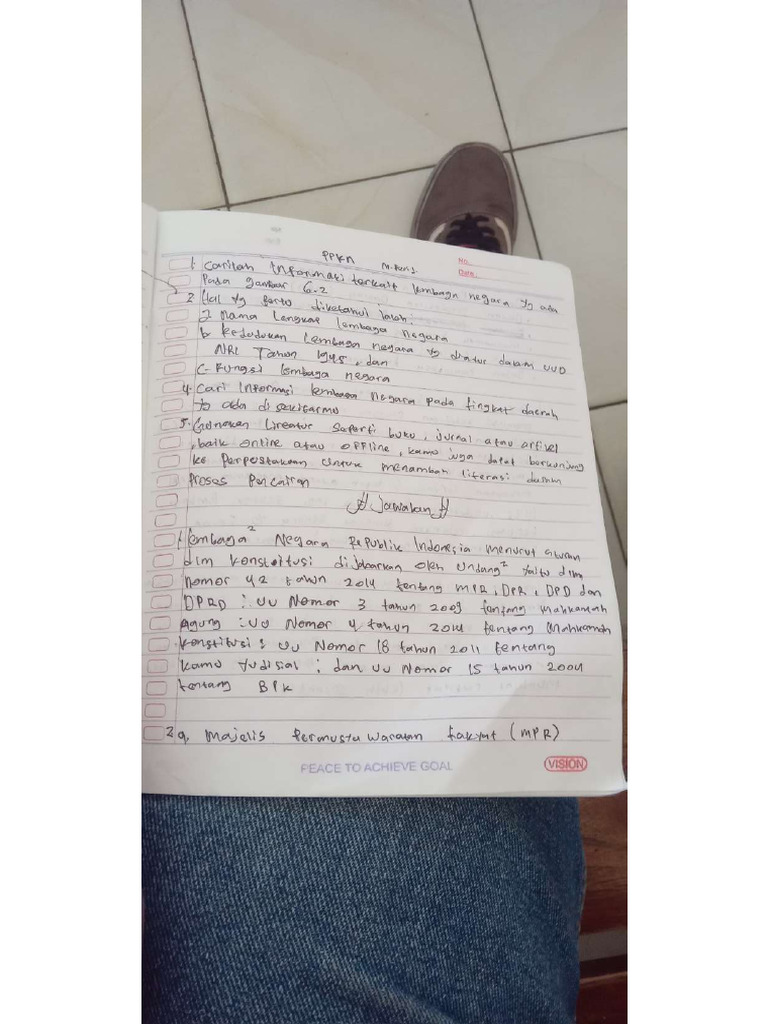 PPKN
NO.
DATE:
1. Carilah Informasi terkait lembaga negara yg ada
Pada gambar 6.2
2. Hal yg Perlu diketahui ialah:
Nama Lengkap lembaga negara
b. Kedudukan Lembaga negara yg diatur dalam UUD
NRI Tahun 1945, dan
C. Fungsi lembaga negara
4. Cari Informasi lembaga Negara pada tingkat daerah
yg ada di sekitarmu
5. Gunakan Literatur seperti buku, jurnal atau artikel
, baik online atau offline, kamu juga dapat berkunjung
ke Perpustakaan untuk menambah literasi dalam
Proses Pencarian
Jawaban
1. lembaga² Negara Republik Indonesia menurut aturan
dlm konstitusi dijabarkan oleh undang² yaitu dlm
nomor 42 tahun 2014 tentang MPR, DPR, DPD dan
DPRD : UU Nomor 3 tahun 2009 tentang Mahkamah
Agung : UU Nomor 4 tahun 2014 tentang Mahkamah
konstitusi : UU Nomor 18 tahun 2011 tentang
kamo Yudisial ; dan UU Nomor 15 tahun 2004
tentang BPK
2 a. Majelis Permusyawaratan Rakyat (MPR)
PEACE TO ACHIEVE GOAL
VISION